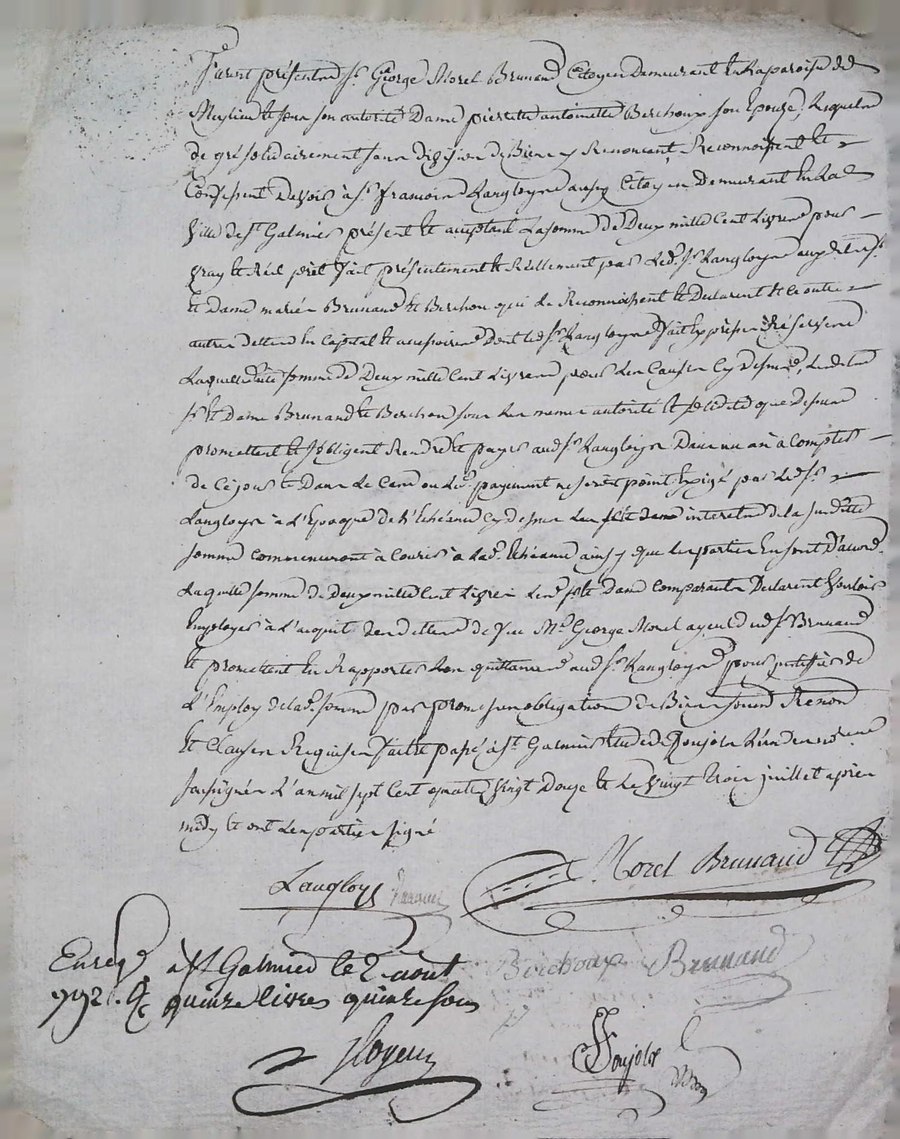 furent présents sr. George Morel Brunand Citoyen demeurant en la paroisse de
et sous son autorité Dame pierrette antoinette Berchoux son Epouse, Lesquels
de gré solidairement sans division de Biens y Renoncant, Reconnoissent et
Confessent Devoir à sr. francois Langloys aussy Citoyen Demeurant en la
Ville de st. Galmier présent et acceptant La somme de Deux mille Cent Livres pour
vray et Réel prêt fait présentement et Réellement par led. sr. Langloys auxdits sr.
et dame mariés Brunand et Berchou qui le Reconnoissent et Declarent et ce outre
autres dettes en Capital et accessoires dont led. sr. Langloys fait expresse Réserve
Laquelle dite somme de Deux mille Cent Livres pour Les Causes Cy dessus, Lesdits
sr. et Dame Brunand et Berchou sous Les memes autorité et solidité que dessus
promettent et s'obligent Rendre et payer aud. sr. Langloys Dans un an à Compter
de Ce jour et Dans Le Cas ou Led. payement ne seroit point Exigé par Led. sr.
Langloys à L'Epoque de L'Echéance Cy dessus Les interets de la susditte
somme commenceront à Courir à Lad. Echéance ainsy que Les parties En sont D'accord.
Laquelle somme de Deux mille Cent Livres Lesd. sr. et Dame Comparants Declarent Vouloir
Employer à L'acquit des dettes de feu Me. George Morel ayeul dud. sr. Brunand
et promettent En Rapporter Les quittances aud. sr. Langloys pour justifier de
L'Employ de lad. somme par promesse obligation de Biens soum. Renon.
et Clauses Requises fait et passé à st. Galmier Etude de Ponjols L'un des nores.
soussignés L'an mil sept Cent quatre Vingt Douze et Le Vingt trois juillet après
midy et ont Les parties signé
Langloys Morel Brunand
Berchoux Brunand
Enregé. à st. Galmier le 2 aout
1792. R. quinze livres quinze sous